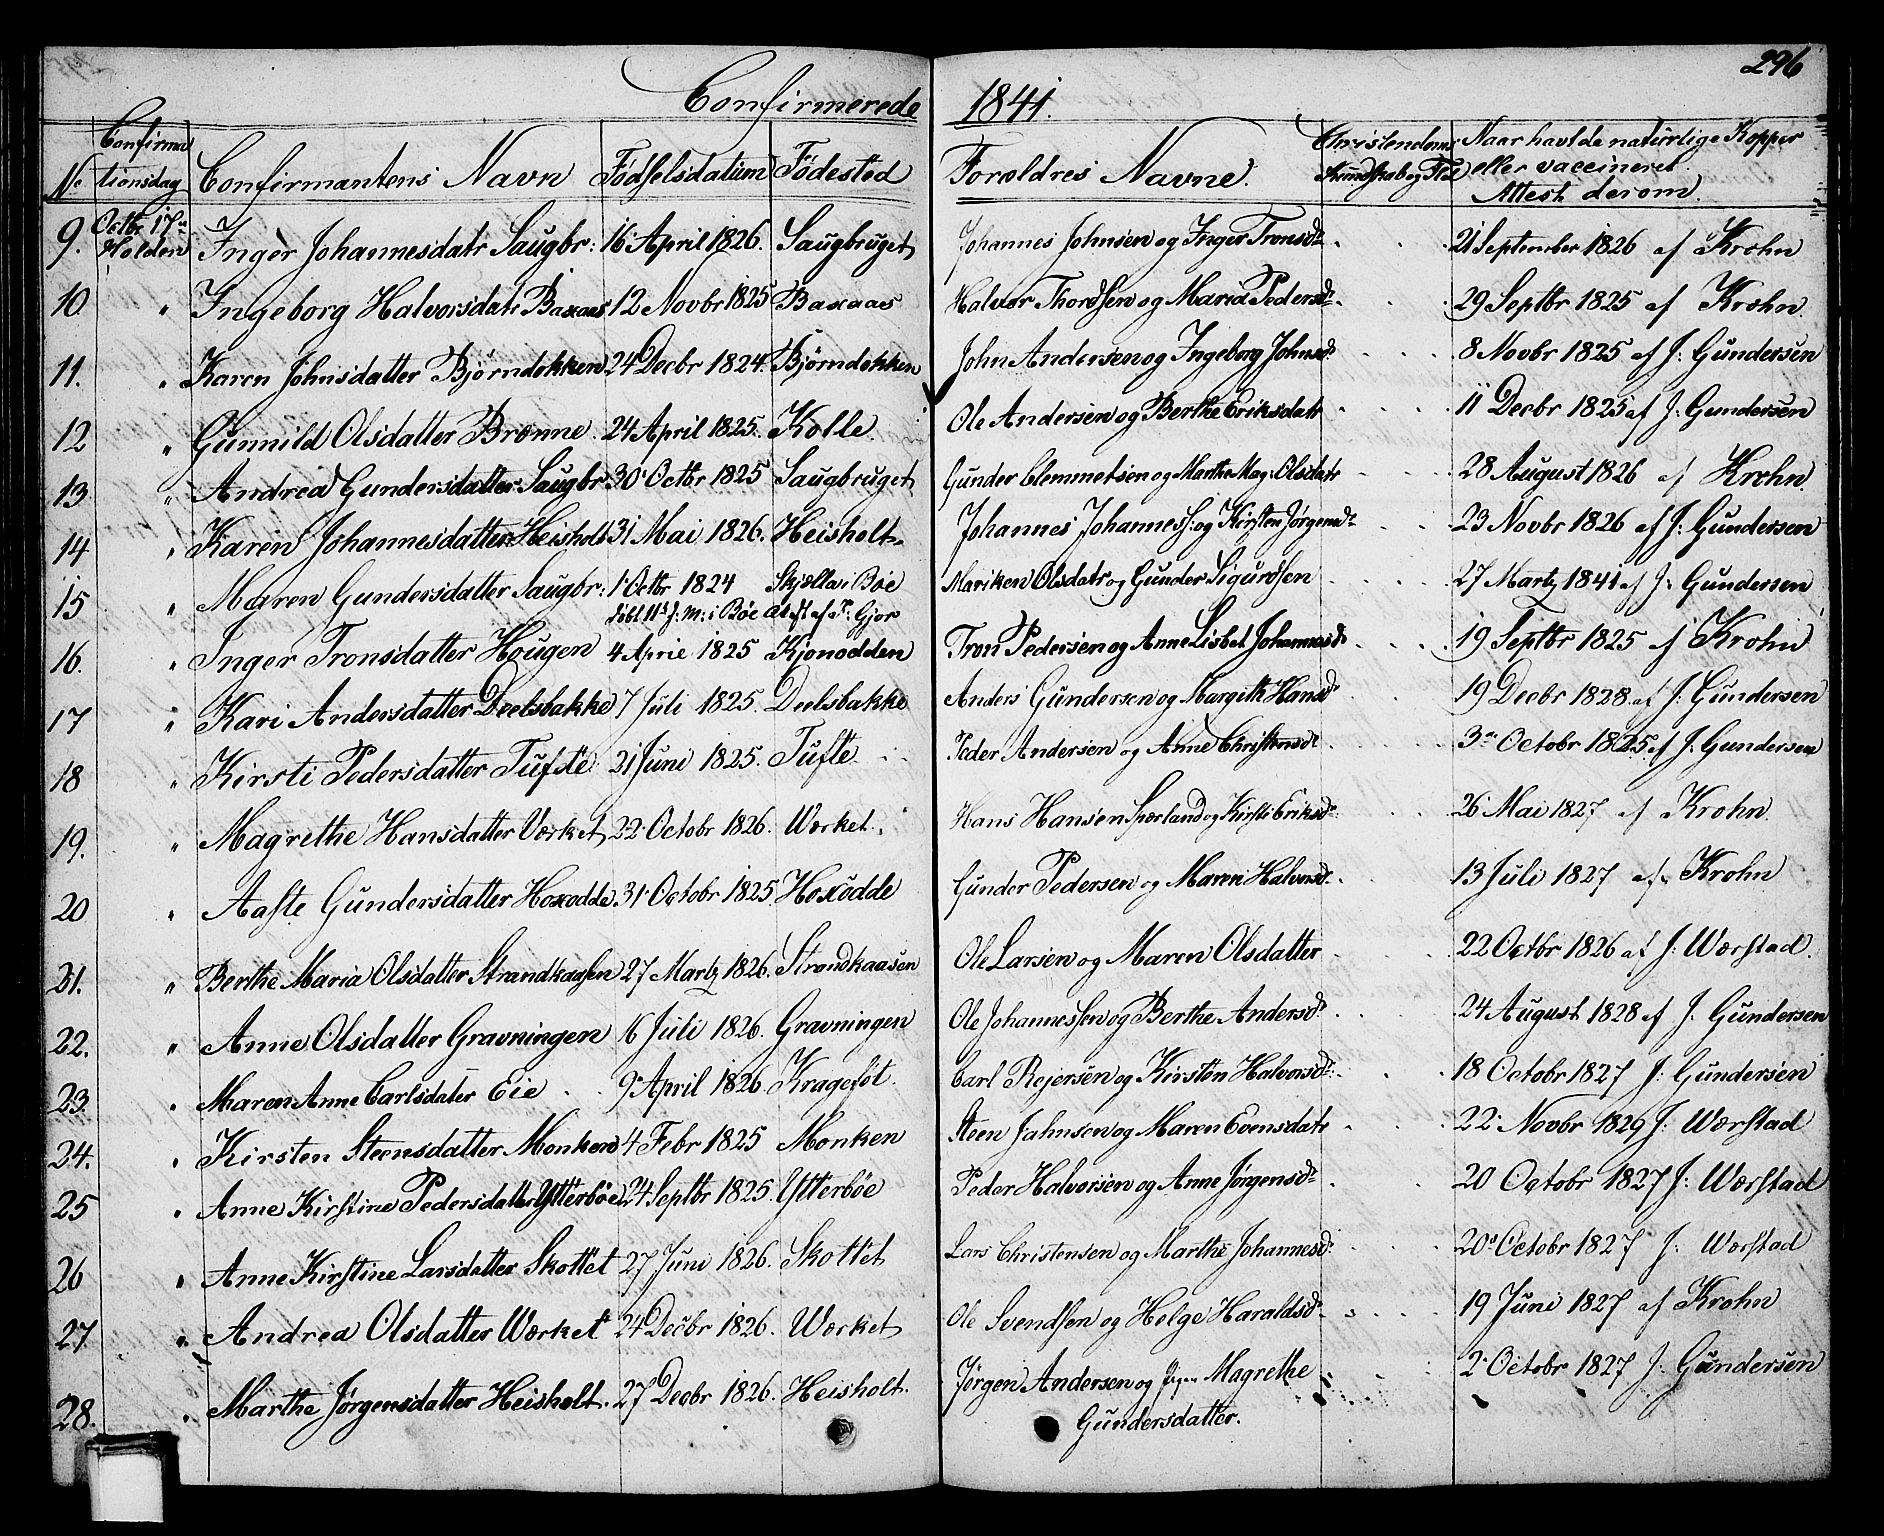 296
Confirmerede 1841.
No Confirmationsdag Confirmantens Navn Födselsdatum Födested Forældres Navne. Christendoms Kundskab og Flid Naar havt de naturlige Kopper eller vaccineret Attest derom.
9. Octbr 17de Holden Inger Johannesdatr Saugbr: 16 April 1826. Saugbruget Johannes Johnsen og Inger Tronsdr 21 September 1826 af Krohn
10. " Ingeborg Halvorsdatr Baxaas 12 Novbr 1825 Baxaas Halvor Thordsen og Maria Pedersdr 29 Septbr 1825 af Krohn.
11. " Karen Johnsdatter Bjørndokken 24 Decbr 1824. Bjørndokken John Andersen og Ingeborg Johnsdr 8 Novbr 1825 af J: Gundersen
12 " Gunnild Olsdatter Brenne. 24 April 1825. Kolle. Ole Andersen og Berthe Eriksdatr 11 Decbr 1825 af J: Gundersen
13 " Andrea Gundersdatter Saugbr 30 Octbr 1825 Saugbruget Gunder Clemmetsen og Marthe Mag: Olsdatr 28 August 1826 af Krohn.
14 " Karen Johannesdatter Heisholt 31 Mai 1826. Heisholt Johannes Johanness: og Kirsten Jørgensdr 23 Novbr 1826 af J: Gundersen
15 " Maren Gundersdatter Saugbr: 1 Octbr 1824 Skjælla i Bøe Mariken Olsdatr og Gunder Sigurdsen 27 Martz 1841 af J: Gundersen
døbt 11t J: M: i Bøe at: af P: Gjør
16. " Inger Tronsdatter Hougen 4 April 1825 Kjonodden Tron Pedersen og Anne Lisbet Johannesdr 19 Septbr 1825 af Krohn
17 " Kari Andersdatter Deelsbakke 7 Juli 1825. Deelsbakke Anders Gundersen og Margith Hansdr 19 Decbr 1828 af J: Gundersen
18 " Kirsti Pedersdatter Tufste 21 Juni 1825. Tufte. Peder Andersen og Anne Christensdr 3 Octobr 1825 af J: Gundersen
19. " Magrethe Hansdatter Værket 22 Octobr 1826. Wærket. Hans Hansen Sperland og Kirsti Eriksdr 26 Mai 1827 af Krohn.
20 " Aaste Gundersdatter Hoxodde. 31 Octobr 1825 Hoxodde Gunder Pedersen og Maren Halvorsdr 13 Juli 1827 af Krohn
21. " Berthe Maria Olsdatter Strandkaasen 27 Martz 1826. Strandkaasen Ole Larsen og Maren Olsdatter 22 Octbr 1826 af J: Wærstad.
22. " Anne Olsdatter Gravningen 16 Juli 1826. Gravningen Ole Johannessen og Berthe Andersdr 24 August 1828 af J. Gundersen
23. " Maren Anne Carlsdater Eie 9 April 1826. Kragefot. Carl Rejersen og Kirsten Halvorsdr 18 Octobr 1827 J: Gundersen
24. " Kirsten Steensdatter Monken 4 Febr 1825 Monken Steen Jahnsen og Maren Evensdatr 22 Novbr 1829 J: Wærstad
25 " Anne Kirstine Pedersdatter Ytterbøe 24 Septbr 1825. Ytterbøe Peder Halvorsen og Anne Jørgensdr 20 Octobr 1827 J: Wærstad
26 " Anne Kirstine Larsdatter Skottet 27 Juni 1826. Skottet Lars Christensen og Marthe Johannesdr 20 Octobr 1827 J: Wærstad
27. " Andrea Olsdatter Wærket 24 Decbr 1826. Wærket Ole Svendsen og Helge Haraldsdr 19 Juni 1827 af Krohn
28. " Marthe Jørgensdatter Heisholt. 27 Decbr 1826. Heisholt. Jørgen Andersen og Magrethe 2 Octobr 1827 J: Gundersen
Gundersdatter.